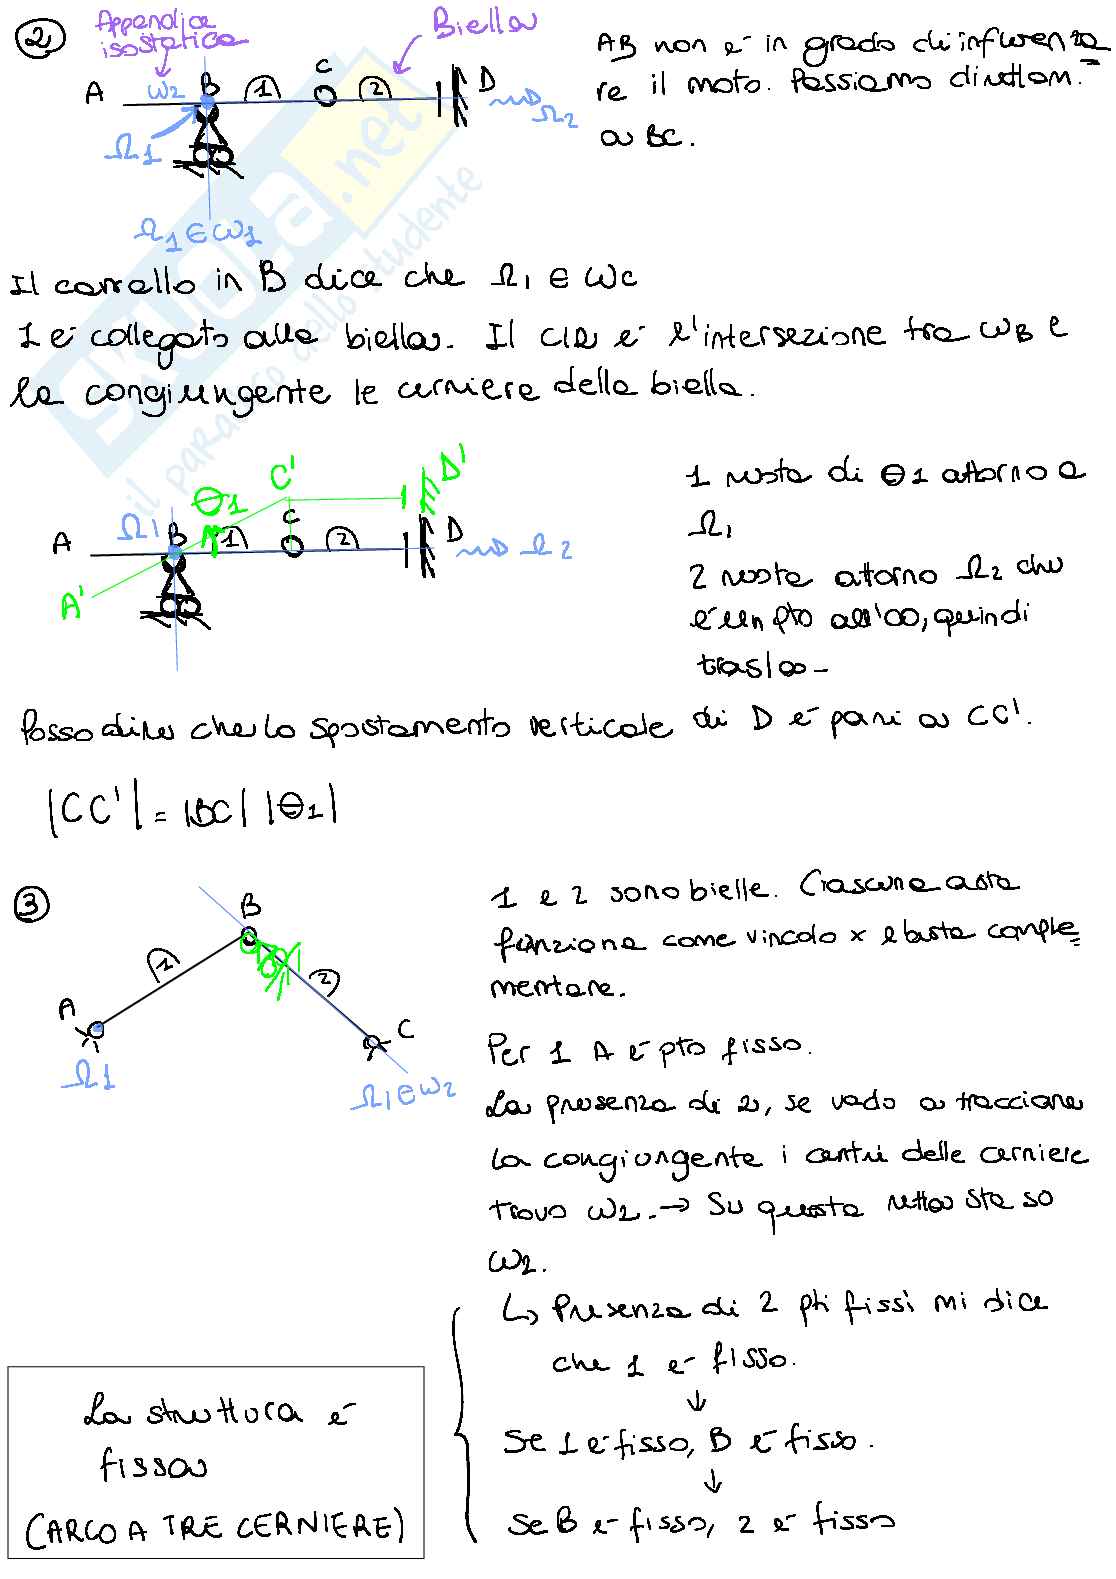 2
Appendice
isostatica
Biella
A ω2 B 1 C 2 D
Ω2
Ω1
Ω1 ∈ ω1
AB non è in grado di influenza
re il moto. Possiamo direttam.
a BC.
Il carrello in B dice che Ω1 ∈ ωc
1 è collegato alla biella. Il CIR è l'intersezione tra ωB e
la congiungente le cerniere della biella.
A Ω1 B θ1 1 C' C 2 D' D Ω2
A'
1 ruota di θ1 attorno a
Ω1
2 ruota attorno Ω2 che
è un pto all'∞, quindi
trasla
Posso dire che lo spostamento verticale di D è pari a CC'.
|CC'| = |BC| |θ1|
3
B
1 2
A C
Ω1 Ω1 ∈ ω2
1 e 2 sono bielle. Ciascuna asta
funziona come vincolo x l'asta comple
mentare.
Per 1 A è pto fisso.
La presenza di 2, se vado a tracciare
la congiungente i centri delle cerniere
trovo ω2. → Su questa retta sta so
ω2.
↳ Presenza di 2 pti fissi mi dice
che 1 è fisso.
↓
Se 1 è fisso, B è fisso.
↓
Se B è fisso, 2 è fisso
La struttura è
fissa
(ARCO A TRE CERNIERE)
skuola.net
il paradiso dello studente